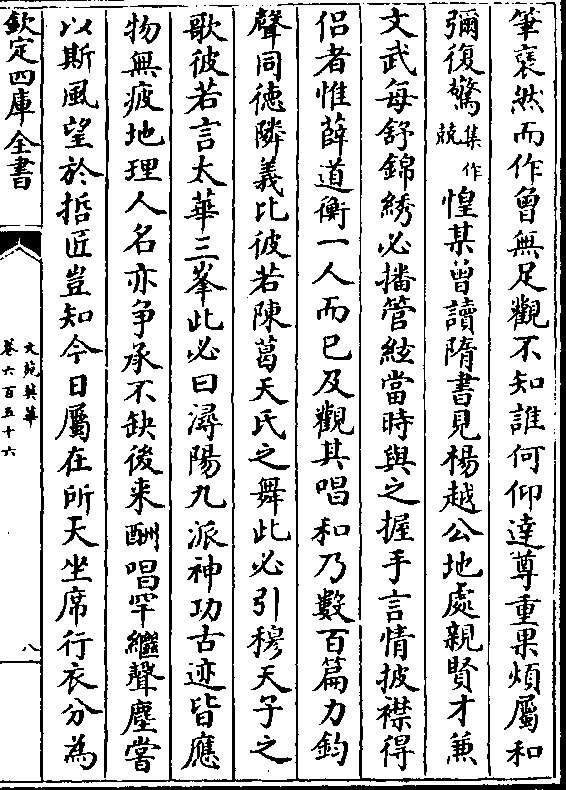 筆裒然而作曾無足觀不知誰何仰達尊重果煩屬和
彌復驚集作競惶某曾讀隋書見楊越公地處親賢才兼
文武每舒錦綉必播管絃當時與之握手言情披襟得
侣者惟薛道衡一人而已及觀其唱和乃數百篇力鈞
聲同徳隣義比彼若陳葛天氏之舞此必引穆天子之
歌彼若言太華三峯此必曰潯陽九派神功古迹皆應
物無疲地理人名亦争承不缺後来酬唱罕繼聲塵當
以斯風望於哲匠豈知今日屬在所天坐席行衣分為
欽定四庫全書
文苑英華
卷六百五十六
八